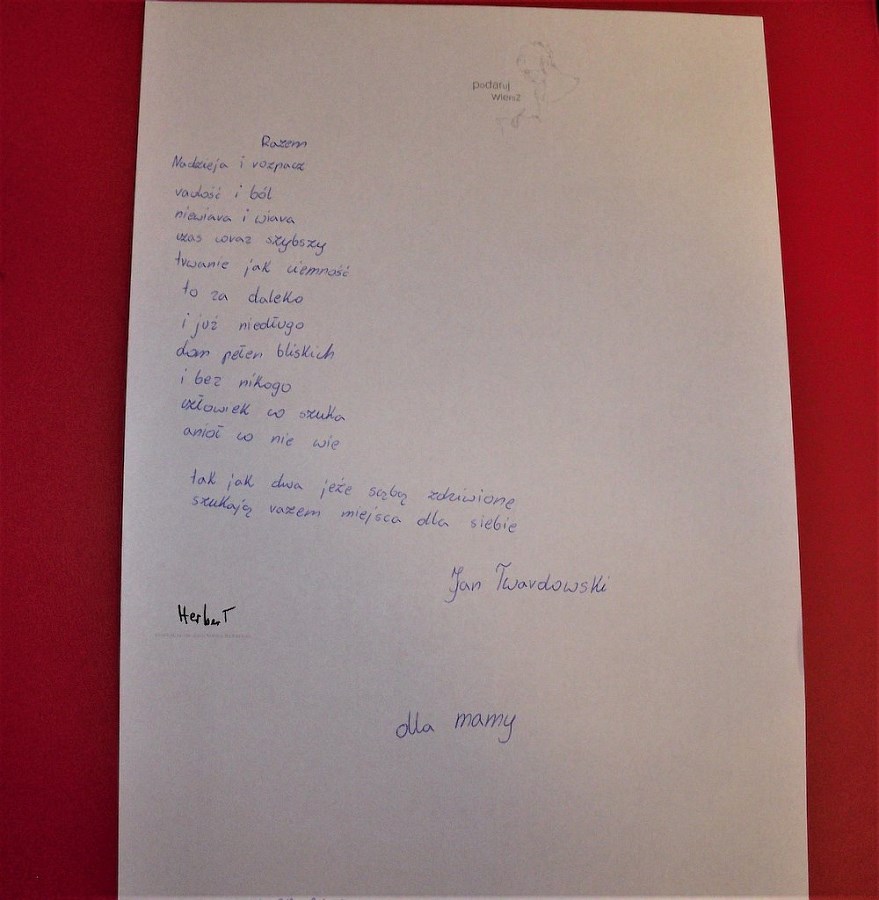 podaruj
wiersz
Razem
Nadzieja i rozpacz
radość i ból
niewiara i wiara
czas coraz szybszy
trwanie jak ciemność
to za daleko
i już niedługo
dom pełen bliskich
i bez nikogo
człowiek co szuka
anioł co nie wie
tak jak dwa jeże sobą zdziwione
szukają razem miejsca dla siebie
Jan Twardowski
HerberT
dla mamy